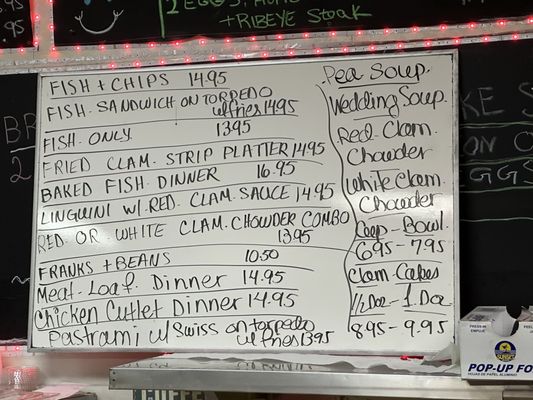 2 EGGS.
+ RIBEYE Steak
.95
.95
FISH + CHIPS 14.95
FISH. SANDWICH ON TORPEDO
w/fries 14.95
FISH. ONLY 13.95
FRIED CLAM. STRIP PLATTER 14.95
BAKED FISH. DINNER 16.95
LINGUINI W/. RED. CLAM. SAUCE 14.95
RED. OR. WHITE CLAM. CHOWDER COMBO
13.95
FRANKS + BEANS 10.50
Meat. Loaf. Dinner 14.95
Chicken Cutlet Dinner 14.95
Pastrami w/ Swiss on torpedo
w/fries 13.95
Pea Soup.
Wedding Soup.
Red. Clam.
Chowder
White Clam.
Chowder
Cup - Bowl.
6.95 - 7.95
Clam. Cakes
1/2 Doz - 1. Doz
8.95 - 9.95
BR
2
KE S
ON
EGGS
PUSH IN
EMPUJE
SUNSET
POP-UP FO
HOJAS DE PAPEL ALUMINIO